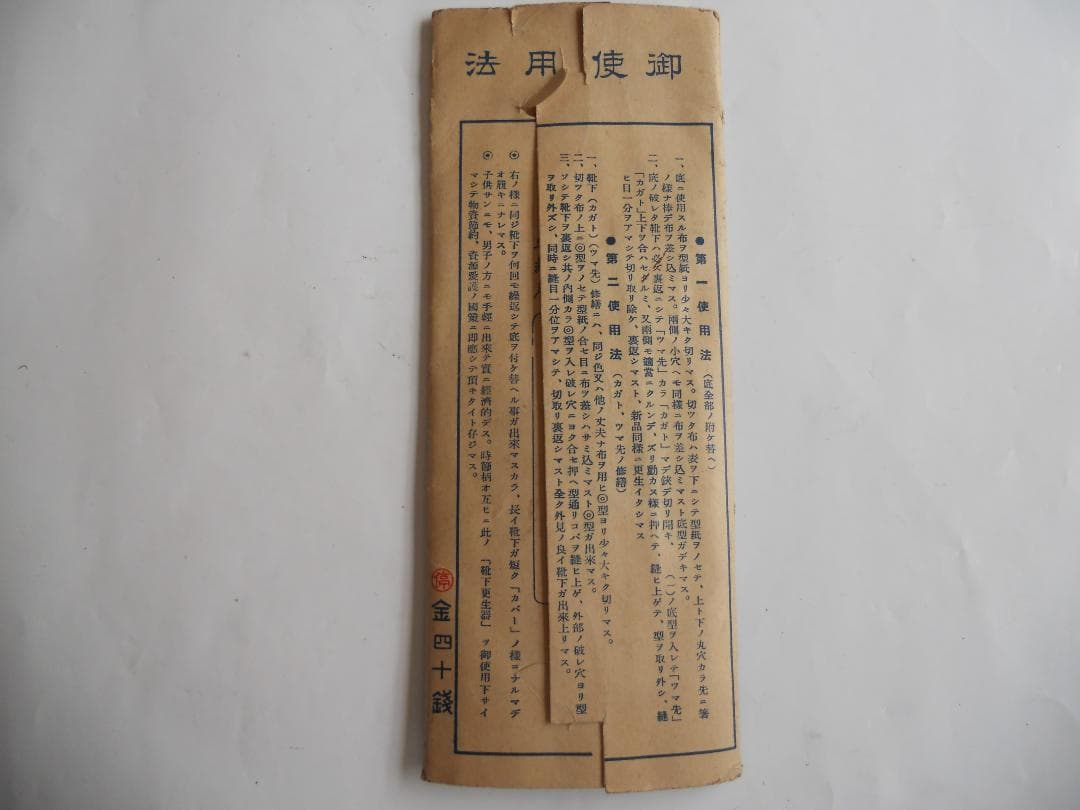 御使用法
●第一使用法（底全部ノ附ケ替ヘ）
一、底ニ使用スル布ヲ型紙ヨリ少々大キク切リマス。切ツタ布ハ表ヲ下ニシテ型紙ヲノセテ、上ト下ノ丸穴カラ先ニ箸
ノ様ナ棒デ布ヲ差シ込ミマス。兩側ノ小穴ヘモ同樣ニ布ヲ差シ込ミマスト底型ガデキマス。
二、底ノ破レタ靴下ハ必ズ裏返ニシテ「ツマ先」カラ「カガト」マデ鋏デ切リ開キ、（一）ノ底型ヲ入レテ「ツマ先」
「カガト」上下ヅ合ハセダルミ、又兩側モ適當ニクルンデ、ズリ動カヌ樣ニ押ヘテ、縫ヒ上ゲテ、型ヲ取リ外シ、縫
ヒ目一分ヲアマシテ切リ取リ除ケ、裏返シマスト、新品同樣ニ更生イタシマス
●第二使用法（カガト、ツマ先ノ修繕）
一、靴下（カガト）（ツマ先）修繕ニハ、同ジ色又ハ他ノ丈夫ナ布ヲ用ヒ◎型ヨリ少々大キク切リマス。
二、切ツタ布ノ上ニ◎型ヲノセテ型紙ノ合セ目ニ布ヅ差シハサミ込ミマスト◎型ガ出來マス。
三、ソシテ靴下ヲ裏返シ其ノ內側カラ◎型ヲ入レ破レ穴ニヨク合セ押ヘ型通リコバヲ縫ヒ上ゲ、外部ノ破レ穴ヨリ型
ヲ取リ外ズシ、同時ニ縫目一分位ヲアマシテ、切取リ裏返シマスト全ク外見ノ良イ靴下ガ出來上リマス。
◉ 右ノ樣ニ同ジ靴下ヲ何回モ繰返シテ底ヲ付ケ替ヘル事ガ出來マスカラ、長イ靴下ガ短ク「カバー」ノ樣ニナルマデ
オ履キニナレマス。
◉ 子供サンニモ、男子ノ方ニモ手輕ニ出來テ實ニ經濟的デス。時節柄オ互ヒニ此ノ「靴下更生器」ヲ御使用下サイ
マシテ物資節約、資源愛護ノ國策ニ卽應シテ頂キタイト存ジマス。
停 金四十錢